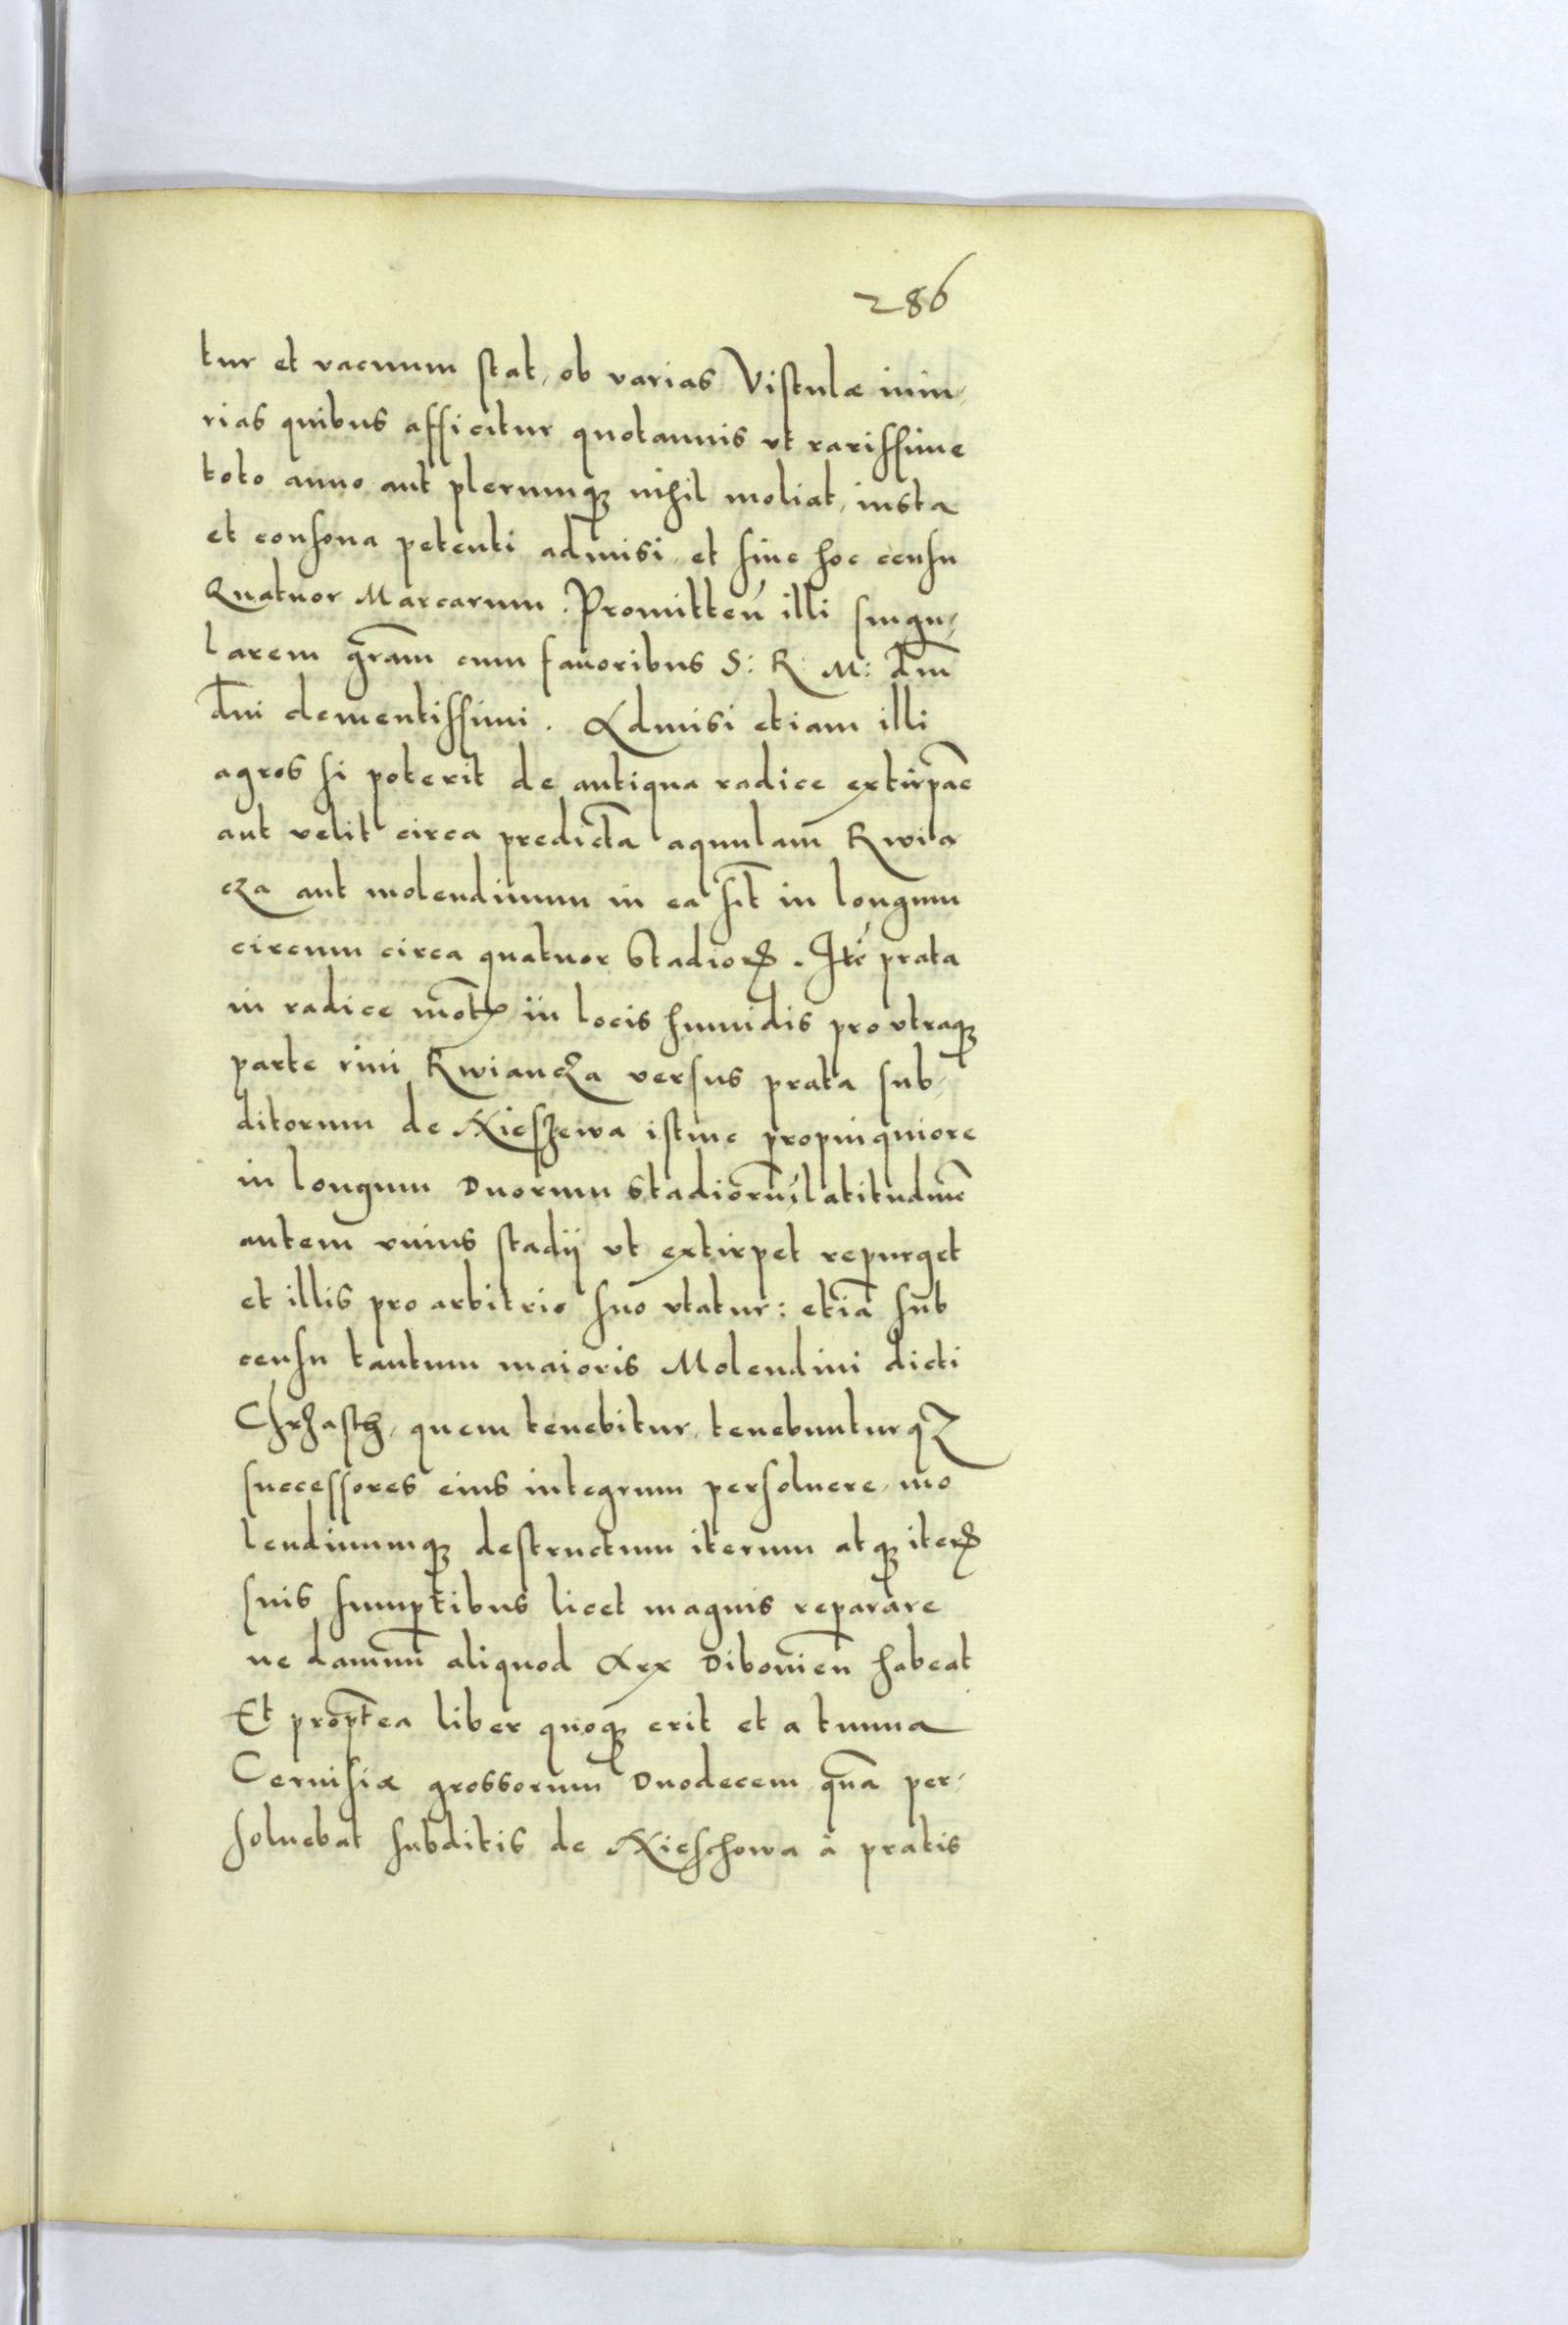 286
tur et vacuum stat, ob varias Vistulæ iniu-
rias quibus afficitur quotannis vt rarissime
toto anno aut plerumq3 nihil moliat, iusta
et consona petenti admisi, et sine hoc censu
Quatuor Marcarum. Promitteñ illi singu-
larem gr̄am cum fauoribus S: R: M: dn̄i
dn̄i clementissimi. Admisi etiam illi
agros si poterit de antiqua radice extirpar̄e
aut velit circa predictā aquulam Kwia
cza aut molendinum in ea sit̄ in longum
circum circa quatuor stadioꝝ. Itē prata
in radice mōt in locis humidis pro vtraq3
parte riui Kwiancza versus prata sub-
ditorum de Nieszewa istinc propinquiore
in longum duorum stadiorum, latitudinē
autem vnius stadij vt extirpet repurget
et illis pro arbitrio suo vtatur: etiā sub
censu tantum maioris Molendini dicti
Chrzastz, quem tenebitur, tenebunturq3
successores eius integrum persoluere, mo
lendinumq3 destructum iterum atq3 iteꝝ
suis sumptibus licet magnis reparare
ne damnū aliquod Arx Dibouien̄ habeat
Et propt̄ea liber quoq3 erit et a tunna
Ceruisiæ grossorum duodecem quā per-
soluebat subditis de Nieschowa à pratis